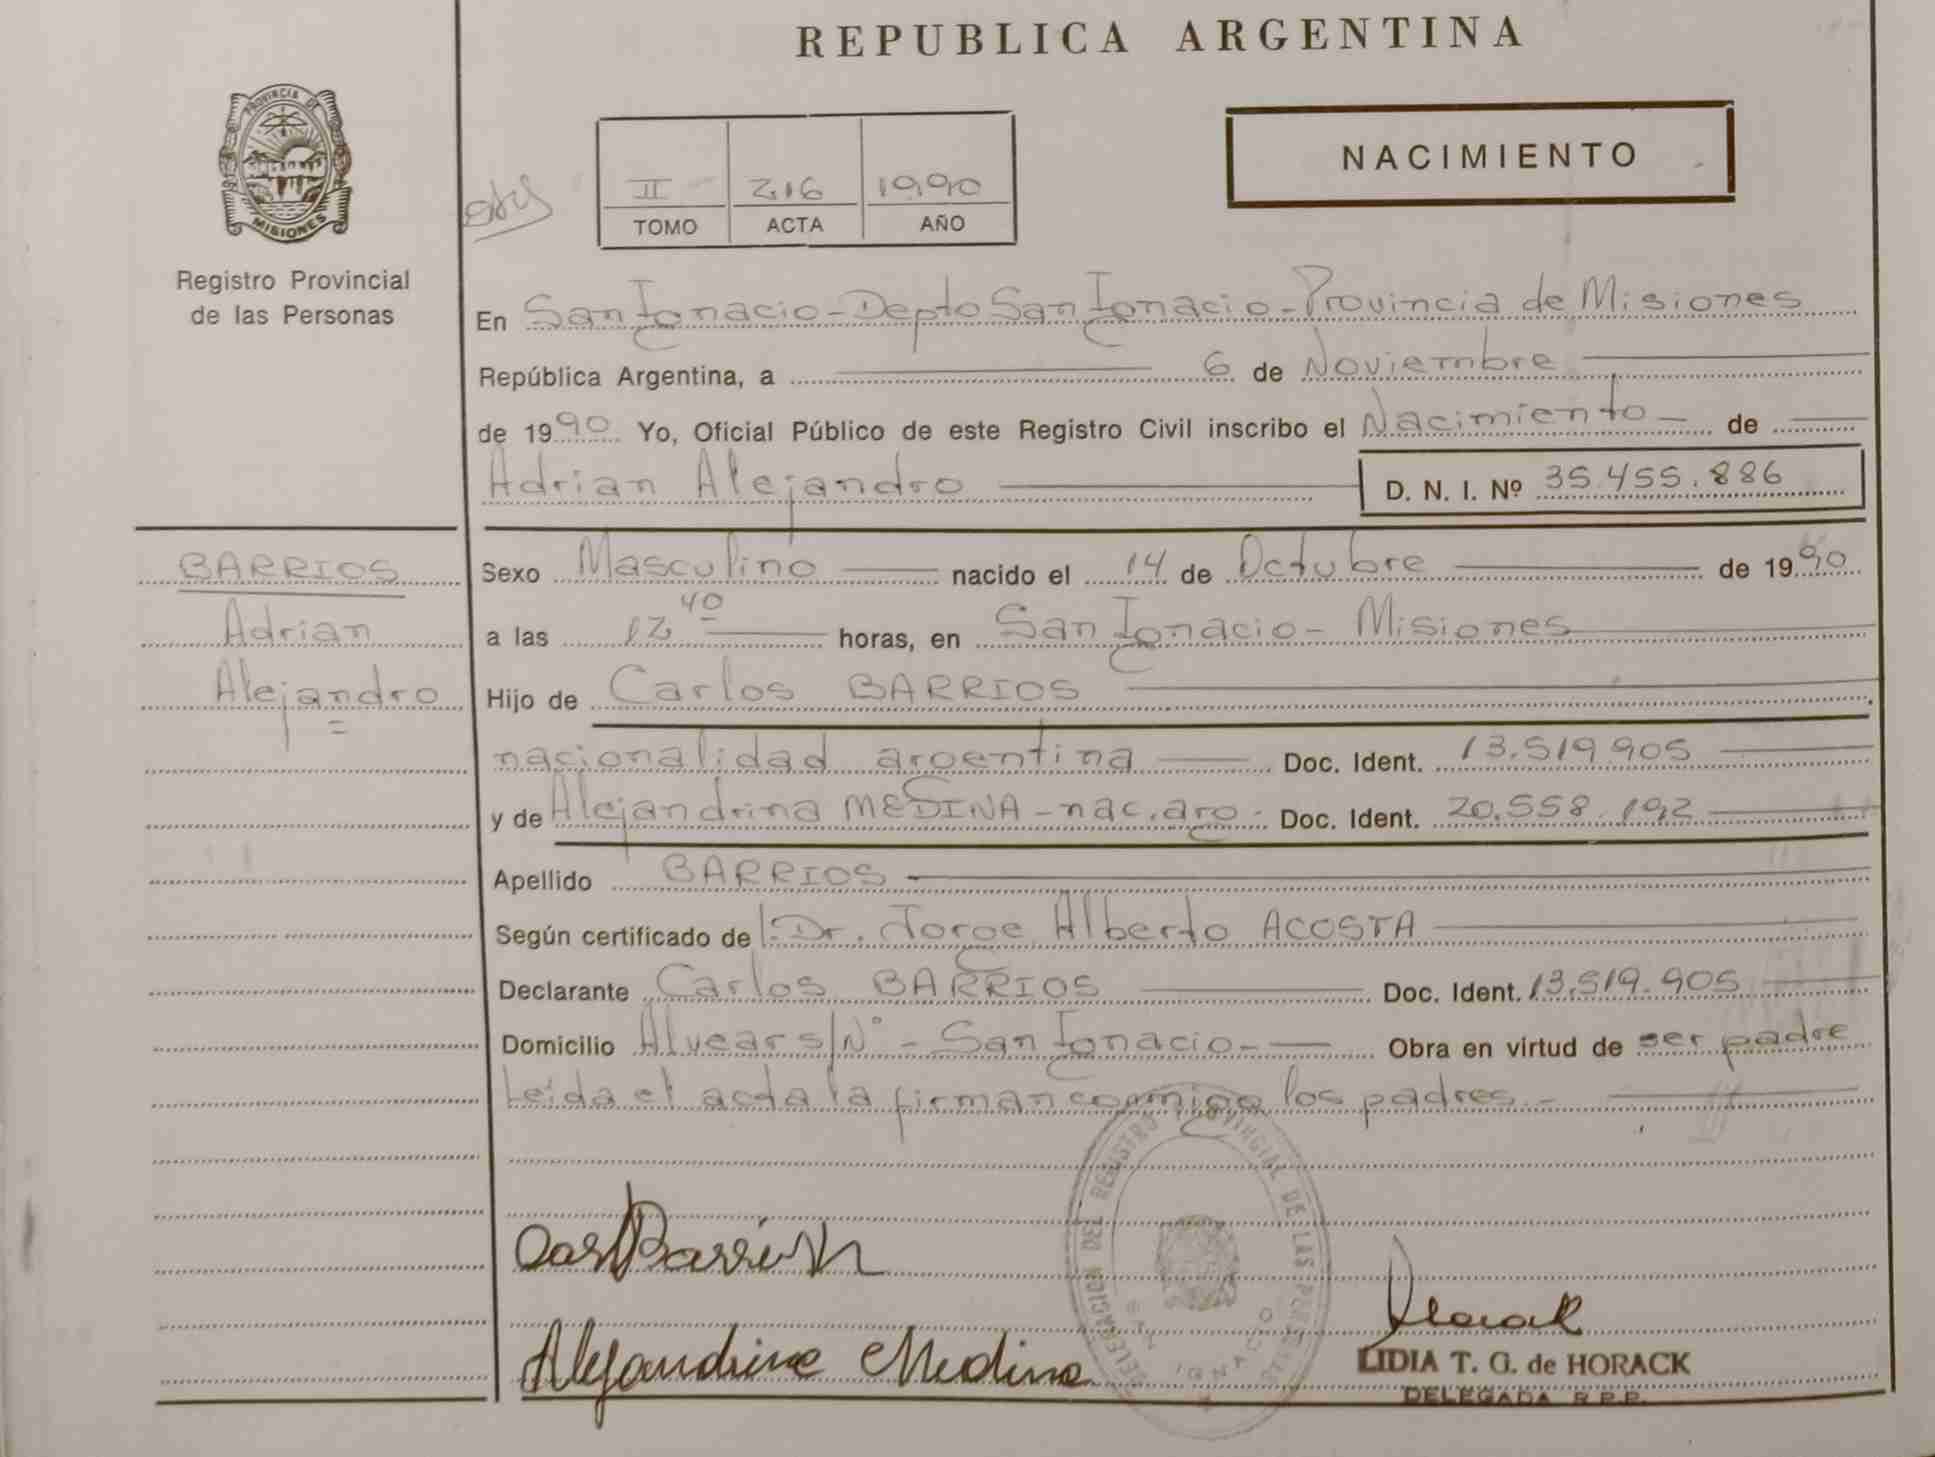 REPUBLICA ARGENTINA
PROVINCIA DE
MISIONES
Registro Provincial
de las Personas
II 216 1990
TOMO ACTA AÑO
NACIMIENTO
En San Ignacio - Depto San Ignacio - Provincia de Misiones
República Argentina, a 6 de Noviembre
de 1990 Yo, Oficial Público de este Registro Civil inscribo el Nacimiento - de
Adrian Alejandro D. N. I. Nº 35.455.886
BARRIOS
Adrian
Alejandro
Sexo Masculino nacido el 14 de Octubre de 1990
a las 12 40 horas, en San Ignacio - Misiones
Hijo de Carlos BARRIOS
nacionalidad argentina Doc. Ident. 13.519.905
y de Alejandrina MEDINA - nac. arg - Doc. Ident. 20.558.192
Apellido BARRIOS
Según certificado de l Dr. Jorge Alberto ACOSTA
Declarante Carlos BARRIOS Doc. Ident. 13.519.905
Domicilio Alvear s/Nº - San Ignacio - Obra en virtud de ser padre
Leída el acta la firman conmigo los padres. -
DELEGACION DEL REGISTRO PROVINCIAL DE LAS PERSONAS
SAN IGNACIO
Barrios
Alejandrina Medina
Horack
LIDIA T. G. de HORACK
DELEGADA R.P.P.